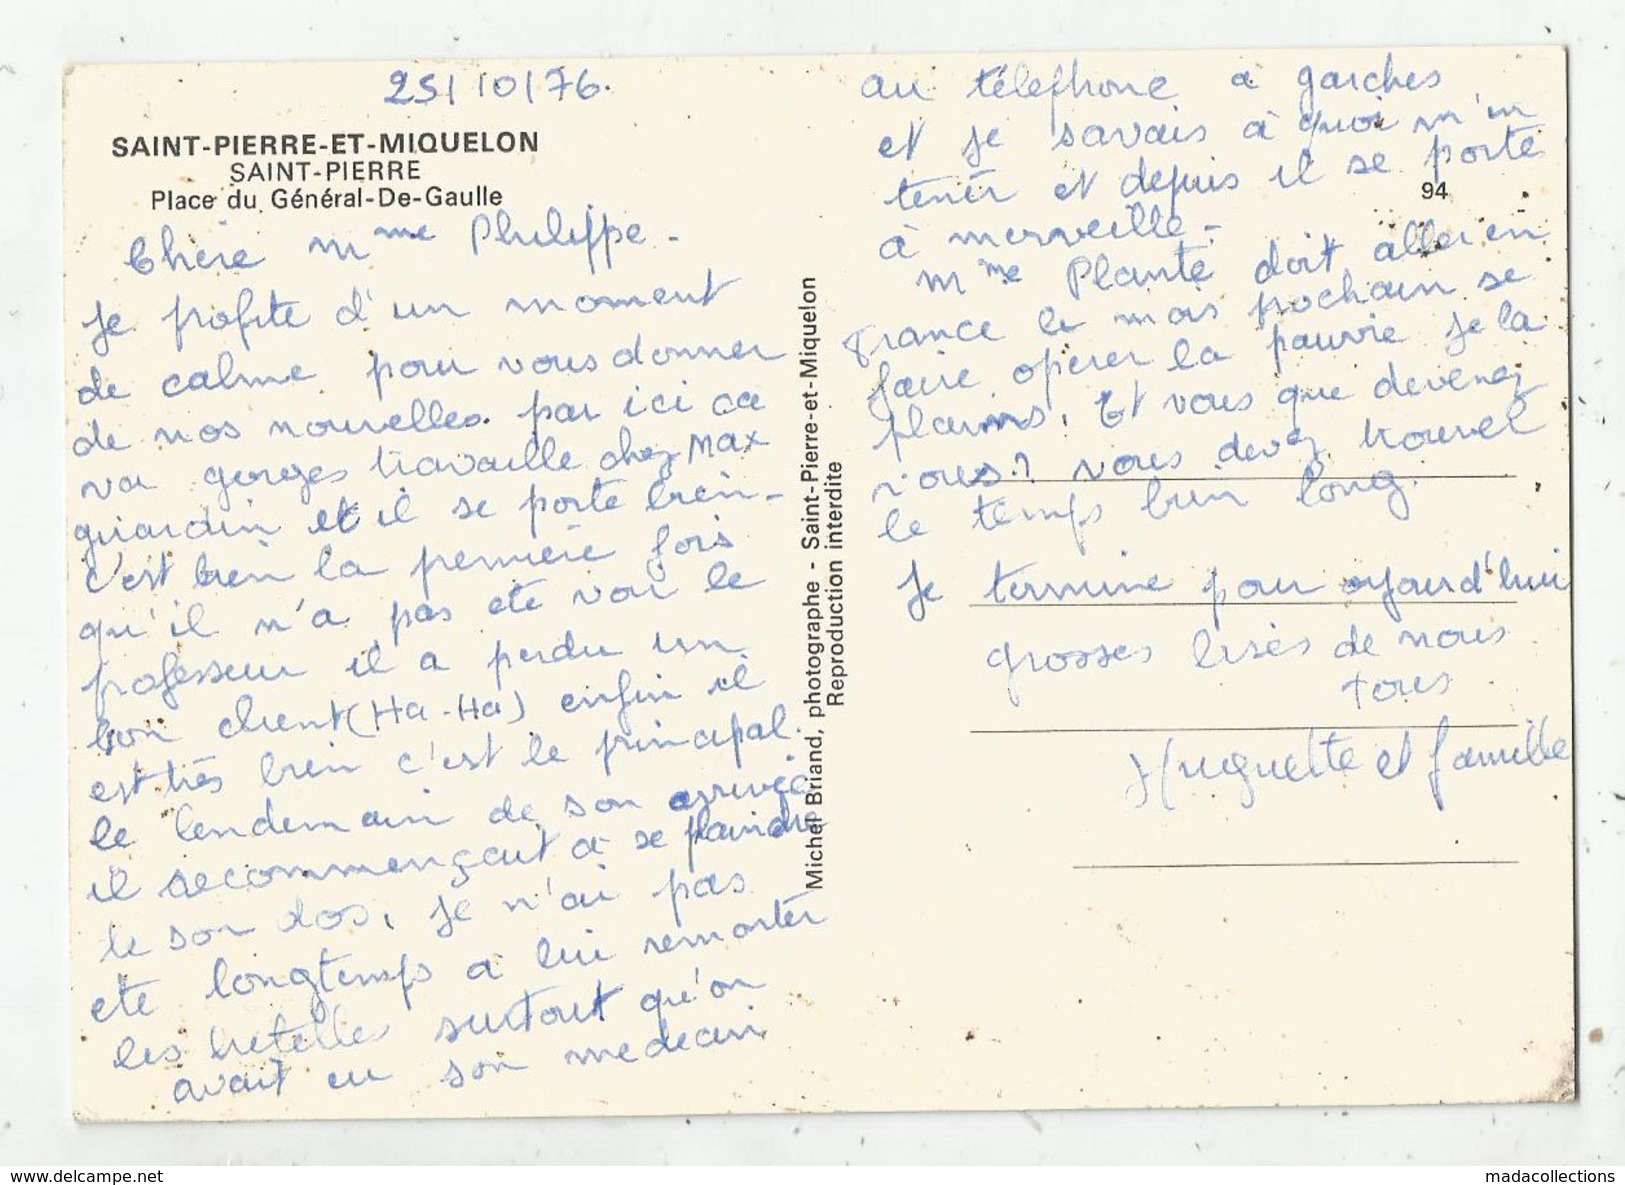 25/10/76.
SAINT-PIERRE-ET-MIQUELON
SAINT-PIERRE
Place du Général-De-Gaulle
Chère Mme Philippe -
Je profite d'un moment
de calme pour vous donner
de nos nouvelles. par ici ca
va georges travaille chez Max
guiardin et il se porte bien -
c'est bien la première fois
qu'il n'a pas ete voir le
professeur il a perdu un
bon client (Ha-Ha) enfin il
est très bien c'est le principal.
le lendemain de son arrivée
il recommençait à se plaindre
de son dos, Je n'ai pas
ete longtemps a lui remonter
les bretelles surtout qu'on
avait eu son medecin
au téléphone a garches
et je savais à quoi m'en
tenir et depuis il se porte
à merveille -
Mme Plante doit aller en
france le mois prochain se
faire opérer la pauvre Je la
plains, Et vous que devenez
vous ? vous devez trouver
le temps bien long.
Je termine pour aujourd'hui
grosses bises de nous
tous
Huguette et famille
94
Michel Briand, photographe - Saint-Pierre-et-Miquelon
Reproduction interdite
madacollections